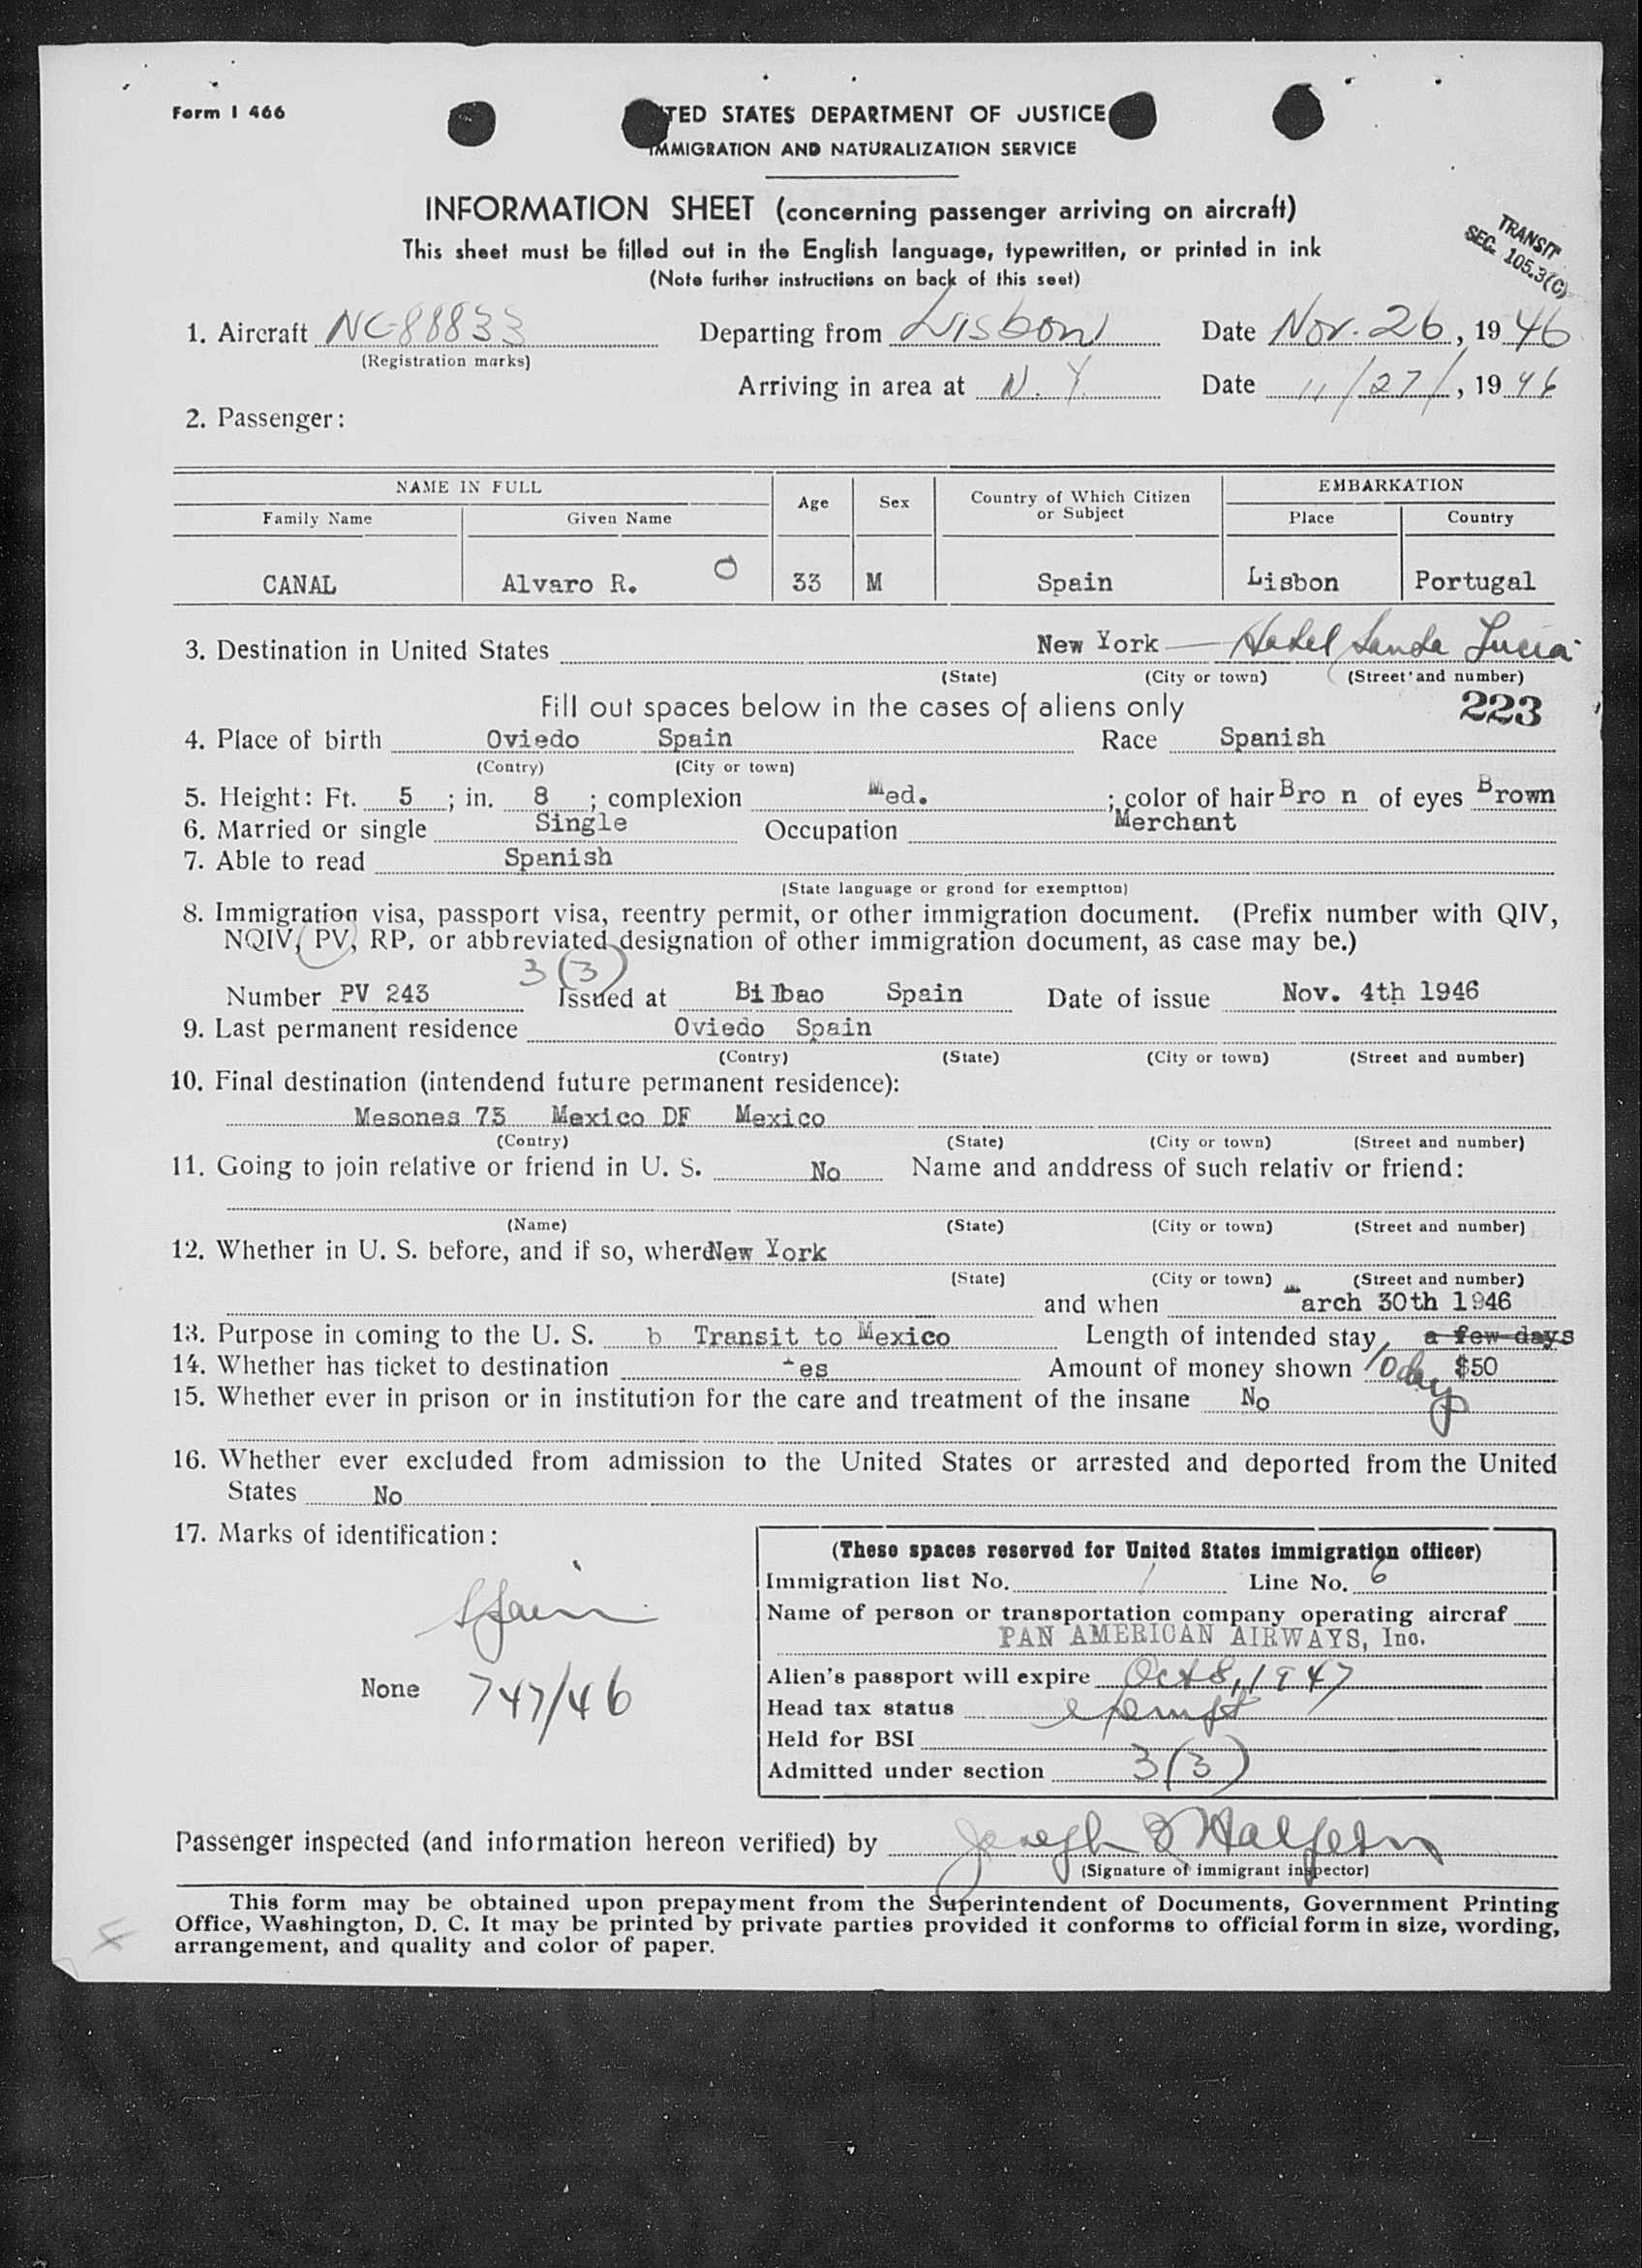 Form I 466
TED STATES DEPARTMENT OF JUSTICE
IMMIGRATION AND NATURALIZATION SERVICE
INFORMATION SHEET (concerning passenger arriving on aircraft)
This sheet must be filled out in the English language, typewritten, or printed in ink
(Note further instructions on back of this seet)
TRANSIT
SEC. 105.3(C)
1. Aircraft NC-88833 Departing from Lisbon Date Nov. 26, 19 46
(Registration marks)
Arriving in area at N.Y. Date 11/27/, 19 46
2. Passenger:
NAME IN FULL Age Sex Country of Which Citizen or Subject EMBARKATION
Family Name Given Name Place Country
CANAL Alvaro R. O 33 M Spain Lisbon Portugal
3. Destination in United States New York — Hotel Santa Lucia
(State) (City or town) (Street and number)
Fill out spaces below in the cases of aliens only 223
4. Place of birth Oviedo Spain Race Spanish
(Contry) (City or town)
5. Height: Ft. 5 ; in. 8 ; complexion Med. ; color of hair Bro n of eyes Brown
6. Married or single Single Occupation Merchant
7. Able to read Spanish
(State language or grond for exemptton)
8. Immigration visa, passport visa, reentry permit, or other immigration document. (Prefix number with QIV,
NQIV, PV, RP, or abbreviated designation of other immigration document, as case may be.)
3(3)
Number PV 243 Issued at Bilbao Spain Date of issue Nov. 4th 1946
9. Last permanent residence Oviedo Spain
(Contry) (State) (City or town) (Street and number)
10. Final destination (intendend future permanent residence):
Mesones 73 Mexico DF Mexico
(Contry) (State) (City or town) (Street and number)
11. Going to join relative or friend in U. S. No Name and anddress of such relativ or friend:
(Name) (State) (City or town) (Street and number)
12. Whether in U. S. before, and if so, where New York
(State) (City or town) (Street and number)
and when March 30th 1946
13. Purpose in coming to the U. S. b Transit to Mexico Length of intended stay a few days
14. Whether has ticket to destination Yes Amount of money shown 10 day $50
15. Whether ever in prison or in institution for the care and treatment of the insane No
16. Whether ever excluded from admission to the United States or arrested and deported from the United
States No
17. Marks of identification:
Spain
None 747/46
(These spaces reserved for United States immigration officer)
Immigration list No. 1 Line No. 6
Name of person or transportation company operating aircraf
PAN AMERICAN AIRWAYS, Inc.
Alien's passport will expire Oct 8, 1947
Head tax status exempt
Held for BSI
Admitted under section 3(3)
Passenger inspected (and information hereon verified) by Joseph Halpern
(Signature of immigrant inspector)
This form may be obtained upon prepayment from the Superintendent of Documents, Government Printing
Office, Washington, D. C. It may be printed by private parties provided it conforms to official form in size, wording,
arrangement, and quality and color of paper.